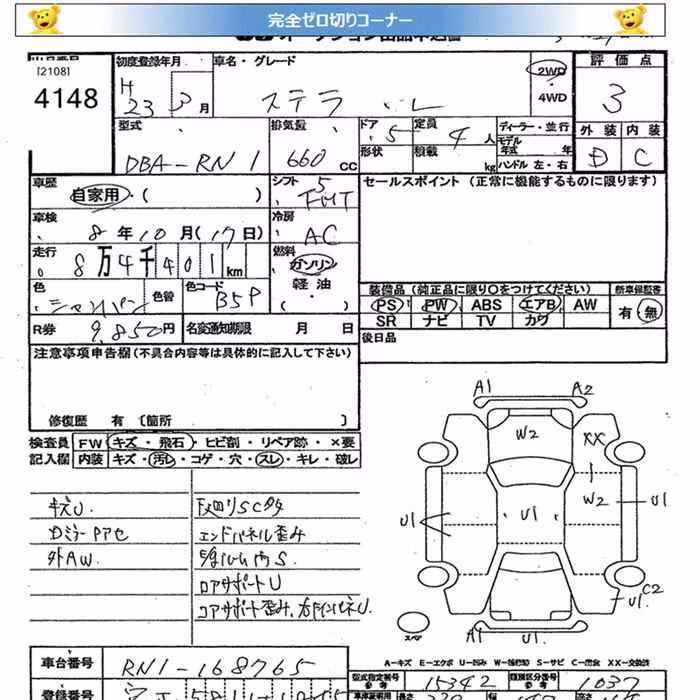 完全ゼロ切りコーナー
[2108]
4148
初度登録年月
H 23 3月
車名・グレード
ステラ L
2WD
4WD
評価点
3
外装 内装
D C
型式
DBA-RN1
排気量
660 CC
ドア 5
形状
定員 4人
積載 kg
ディーラー・並行
モデル年式 年
ハンドル 左・右
車歴
自家用・( )
シフト 5
FMT
セールスポイント (正常に機能するものに限ります)
車検
8年10月(17日)
冷房
AC
走行
8万4千401km
燃料
ガソリン
軽油
・( )
色
シャンパン
色替
色コード
B5P
装備品 (純正品に限り○をつけてください)
PS PW ABS エアB AW
SR ナビ TV カワ
新車保証書
有・無
R券 9,850円
名変通知期限 月 日
後日品
注意事項申告欄(不具合内容等は具体的に記入して下さい)
修復歴 有 〔箇所 〕
検査員
記入欄
FW キズ・飛石・ヒビ割・リペア跡・×要
内装 キズ・汚レ・コゲ・穴・スレ・キレ・破レ
キズU.
Dミラーアセ
外AW.
エンドパネル歪み
ロアサポートU
コアサポート歪み、
A1 A2
W2 XX
W2
U1 U1 U1
C2
U1.
A1 U1.
スペア
A-キズ E-エクボ U-凹み W-補修跡 S-サビ C-腐食 XX-交換済
車台番号
RN1-168765
型式指定番号
参考
15342
類別区分番号
参考
1037
登録番号